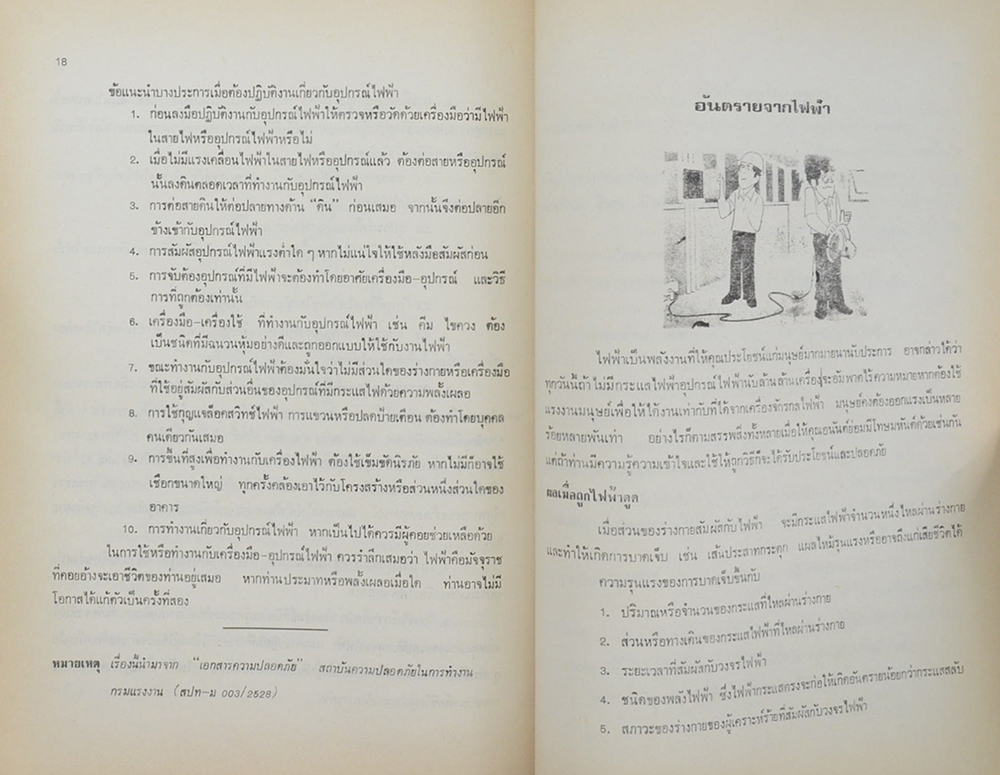 18
ข้อแนะนำบางประการเมื่อต้องปฏิบัติงานเกี่ยวกับอุปกรณ์ไฟฟ้า
1. ก่อนลงมือปฏิบัติงานกับอุปกรณ์ไฟฟ้าให้ตรวจหรือวัดด้วยเครื่องมือว่ามีไฟฟ้า
ในสายไฟหรืออุปกรณ์ไฟฟ้าหรือไม่
2. เมื่อไม่มีแรงเคลื่อนไฟฟ้าในสายไฟหรืออุปกรณ์แล้ว ต้องต่อสายหรืออุปกรณ์
นั้นลงดินตลอดเวลาที่ทำงานกับอุปกรณ์ไฟฟ้า
3. การต่อสายดินให้ต่อปลายทางด้าน “ดิน” ก่อนเสมอ จากนั้นจึงต่อปลายอีก
ข้างเข้ากับอุปกรณ์ไฟฟ้า
4. การสัมผัสอุปกรณ์ไฟฟ้าแรงต่ำใด ๆ หากไม่แน่ใจให้ใช้หลังมือสัมผัสก่อน
5. การจับต้องอุปกรณ์ที่มีไฟฟ้าจะต้องทำโดยอาศัยเครื่องมือ-อุปกรณ์ และวิธี
การที่ถูกต้องเท่านั้น
6. เครื่องมือ-เครื่องใช้ ที่ทำงานกับอุปกรณ์ไฟฟ้า เช่น คีม ไขควง ต้อง
เป็นชนิดที่มีฉนวนหุ้มอย่างดีและถูกออกแบบให้ใช้กับงานไฟฟ้า
7. ขณะทำงานกับอุปกรณ์ไฟฟ้าต้องมั่นใจว่าไม่มีส่วนใดของร่างกายหรือเครื่องมือ
ที่ใช้อยู่สัมผัสกับส่วนอื่นของอุปกรณ์ที่มีกระแสไฟด้วยความพลั้งเผลอ
8. การใช้กุญแจล็อคสวิทช์ไฟฟ้า การแขวนหรือปลดป้ายเตือน ต้องทำโดยบุคคล
คนเดียวกันเสมอ
9. การขึ้นที่สูงเพื่อทำงานกับเครื่องไฟฟ้า ต้องใช้เข็มขัดนิรภัย หากไม่มีก็อาจใช้
เชือกขนาดใหญ่ ทุกครั้งคล้องเอาไว้กับโครงสร้างหรือส่วนหนึ่งส่วนใดของ
อาคาร
10. การทำงานเกี่ยวกับอุปกรณ์ไฟฟ้า หากเป็นไปได้ควรมีผู้คอยช่วยเหลือด้วย
ในการใช้หรือทำงานกับเครื่องมือ-อุปกรณ์ไฟฟ้า ควรรำลึกเสมอว่า ไฟฟ้าคือมัจจุราช
ที่คอยอ้างจะเอาชีวิตของท่านอยู่เสมอ หากท่านประมาทหรือพลั้งเผลอเมื่อใด ท่านอาจไม่มี
โอกาสได้แก้ตัวเป็นครั้งที่สอง
หมายเหตุ เรื่องนี้นำมาจาก “เอกสารความปลอดภัย” สถาบันความปลอดภัยในการทำงาน
กรมแรงงาน (สปท-ม 003/2528)
อันตรายจากไฟฟ้า
ไฟฟ้าเป็นพลังงานที่ให้คุณประโยชน์แก่มนุษย์มากมายนานับประการ อาจกล่าวได้ว่า
ทุกวันนี้ถ้าไม่มีกระแสไฟฟ้าอุปกรณ์ไฟฟ้านับล้านล้านเครื่องจะอัมพาตไร้ความหมายหากต้องใช้
แรงงานมนุษย์เพื่อให้ได้งานเท่ากับที่ได้จากเครื่องจักรกลไฟฟ้า มนุษย์คงต้องออกแรงเป็นหลาย
ร้อยหลายพันเท่า อย่างไรก็ตามสรรพสิ่งทั้งหลายเมื่อให้คุณอนันต์ย่อมมีโทษมหันต์ด้วยเช่นกัน
แต่ถ้าท่านมีความรู้ความเข้าใจและใช้ให้ถูกวิธีก็จะได้รับประโยชน์และปลอดภัย
ผลเมื่อถูกไฟฟ้าดูด
เมื่อส่วนของร่างกายสัมผัสกับไฟฟ้า จะมีกระแสไฟฟ้าจำนวนหนึ่งไหลผ่านร่างกาย
และทำให้เกิดการบาดเจ็บ เช่น เส้นประสาทกระตุก แผลไหม้รุนแรงหรืออาจถึงแก่เสียชีวิตได้
ความรุนแรงของการบาดเจ็บขึ้นกับ
1. ปริมาณหรือจำนวนของกระแสที่ไหลผ่านร่างกาย
2. ส่วนหรือทางเดินของกระแสไฟฟ้าที่ไหลผ่านร่างกาย
3. ระยะเวลาที่สัมผัสกับวงจรไฟฟ้า
4. ชนิดของพลังไฟฟ้า ซึ่งไฟฟ้ากระแสตรงจะก่อให้เกิดอันตรายน้อยกว่ากระแสสลับ
5. สภาวะของร่างกายของผู้เคราะห์ร้ายที่สัมผัสกับวงจรไฟฟ้า